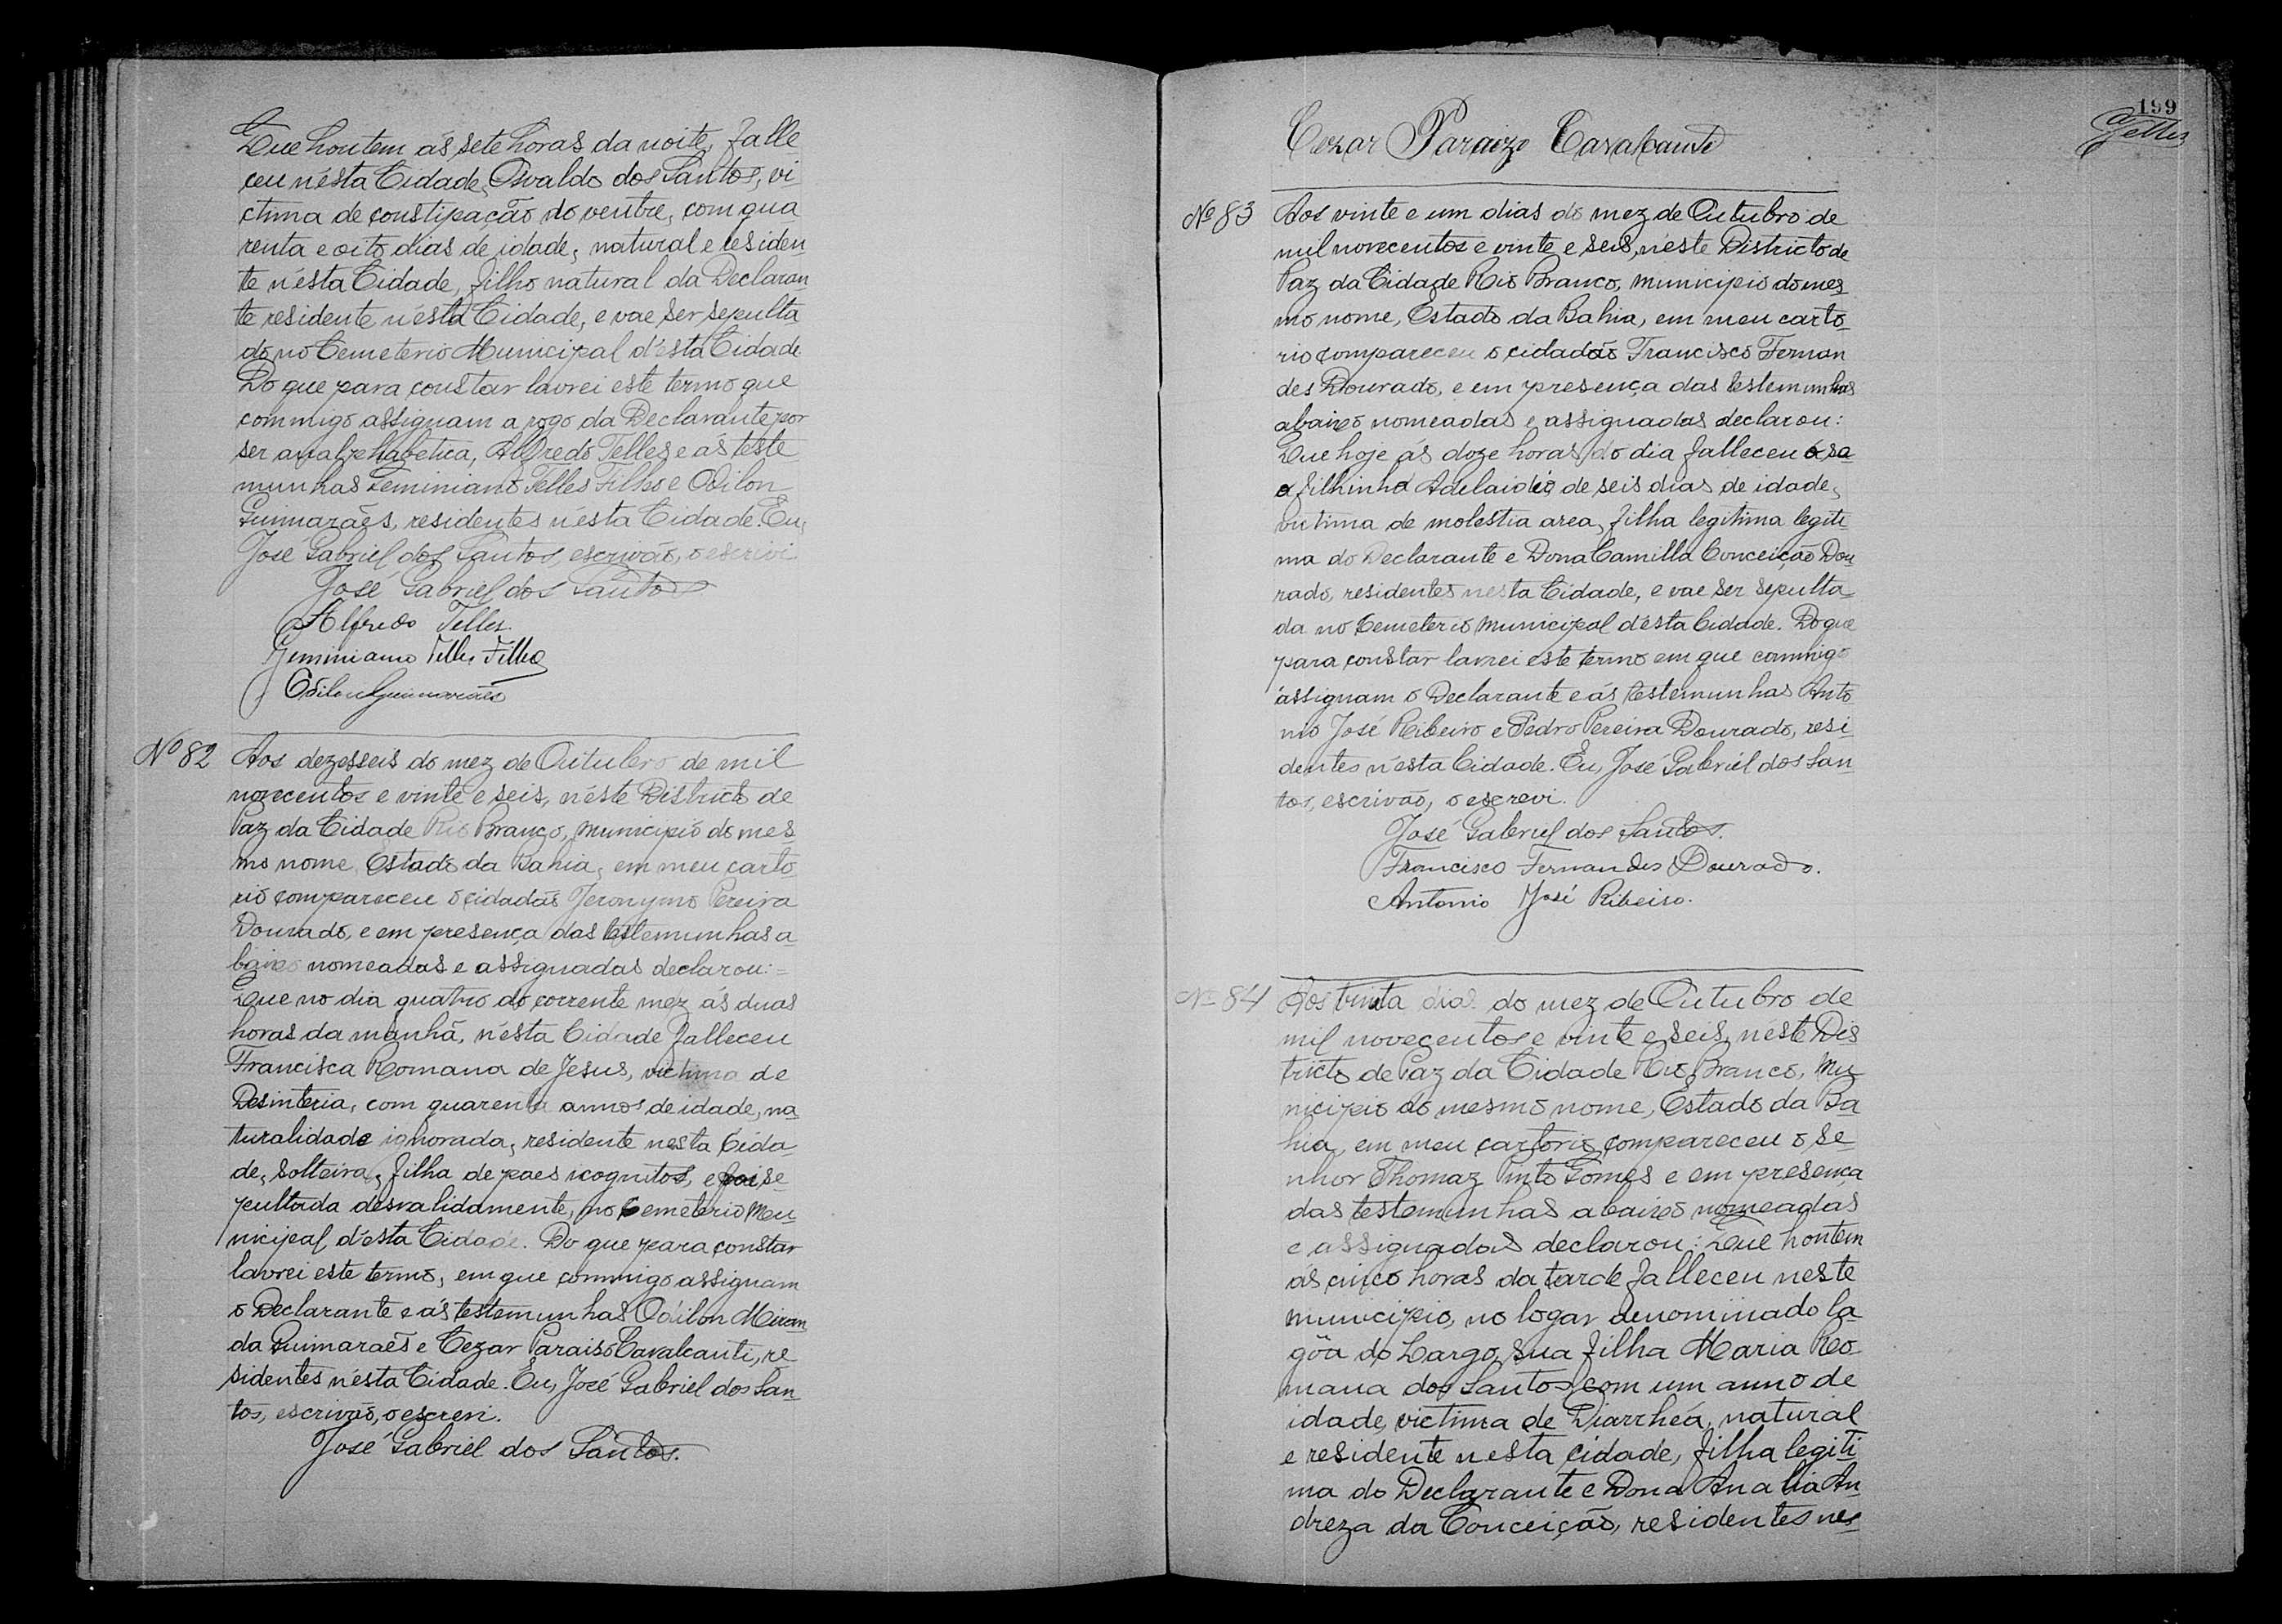 Que hontem ás sete horas da noite, falle
ceu n'ésta Cidade, Osvaldo dos Santos, vi
ctima de constipacão do ventre, com qua
renta e oito dias de idade, natural e residen
te n'ésta Cidade, filho natural da Declaran
te residente n'ésta Cidade, e vae ser sepulta
do no Cemeterio Municipal d'ésta Cidade
Do que para constar lavrei este termo que
commigo assignam a rogo da Declarante por
ser analphabetica, Alfredo Telles e ás teste
munhas Geminiano Telles Filho e Odilon
Guimarães, residentes n'ésta Cidade. Eu,
José Gabriel dos Santos, escrivão, o escrivi
José Gabriel dos Santos
Alfredo Telles.
Geminiano Telles Filho
Odilon Guimarães
Nº 82 Aos dezesseis do mez de Outubro de mil
novecentos e vinte e seis, n'éste Districto de
Paz da Cidade Rio Branco, municipio do mes
mo nome, Estado da Bahia, em meu carto
rio compareceu o cidadão Jeronymo Pereira
Dourado, e em presença das testemunhas a
baixo nomeadas e assignadas declarou:=
Que no dia quatro do corrente mez ás duas
horas da manhã, n'ésta Cidade falleceu
Francisca Romana de Jesus, victima de
Desinteria, com quarenta annos de idade, na
turalidade ignorada, residente nesta Cida
de, solteira, filha de paes icognitos, e foi se
pultada desvalidamente, no Cemeterio Mu
nicipal d'ésta Cidade. Do que para constar
lavrei este termo, em que commigo assignam
o Declarante e ás testemunhas Odilon Miran
da Guimarães e Cezar Paraiso Cavalcanti, re
sidentes n'ésta Cidade. Eu, José Gabriel dos San
tos, escrivão, o escrevi.
José Gabriel dos Santos.
199
Telles
Cezar Paraizo Cavalcanti
Nº 83 Aos vinte e um dias do mez de Outubro de
mil novecentos e vinte e seis, n'éste Districto de
Paz da Cidade Rio Branco, municipio do mes
mo nome, Estado da Bahia, em meu carto
rio compareceu o cidadão Francisco Fernan
des Dourado, e em presença das testemunhas
abaixo nomeadas e assignadas declarou:
Que hoje ás doze horas do dia falleceu
a filhinha Adelaide de seis dias de idade,
victima de molestia area, filha legitima legiti
ma do Declarante e Dona Camilla Conceição Dou
rado, residentes nesta Cidade, e vae ser sepulta
da no Cemeterio Municipal d'ésta Cidade. Do que
para constar lavrei este termo em que commigo
assignam o Declarante e ás testemunhas Anto
nio José Ribeiro e Pedro Pereira Dourado, resi
dentes n'ésta Cidade. Eu, José Gabriel dos San
tos, escrivão, o escrevi.
José Gabriel dos Santos.
Francisco Fernandes Dourado.
Antonio José Ribeiro.
Nº 84 Aos trinta dias do mez de Outubro de
mil novecentos e vinte e seis, n'éste Dis
tricto de Paz da Cidade Rio Branco, Mu
nicipio do mesmo nome, Estado da Ba
hia, em meu cartorio compareceu o Se
nhor Thomaz Pinto Gomes e em presença
das testemunhas abaixo nomeadas
e assignadas declarou: Que hontem
ás cinco horas da tarde falleceu neste
municipio, no logar denominado la
gôa do Largo, sua filha Maria Ro
mana dos Santos, com um anno de
idade, victima de Diarrhéa, natural
e residente nesta cidade, filha legiti
ma do Declarante e Dona Analia An
dreza da Conceição, residentes nes